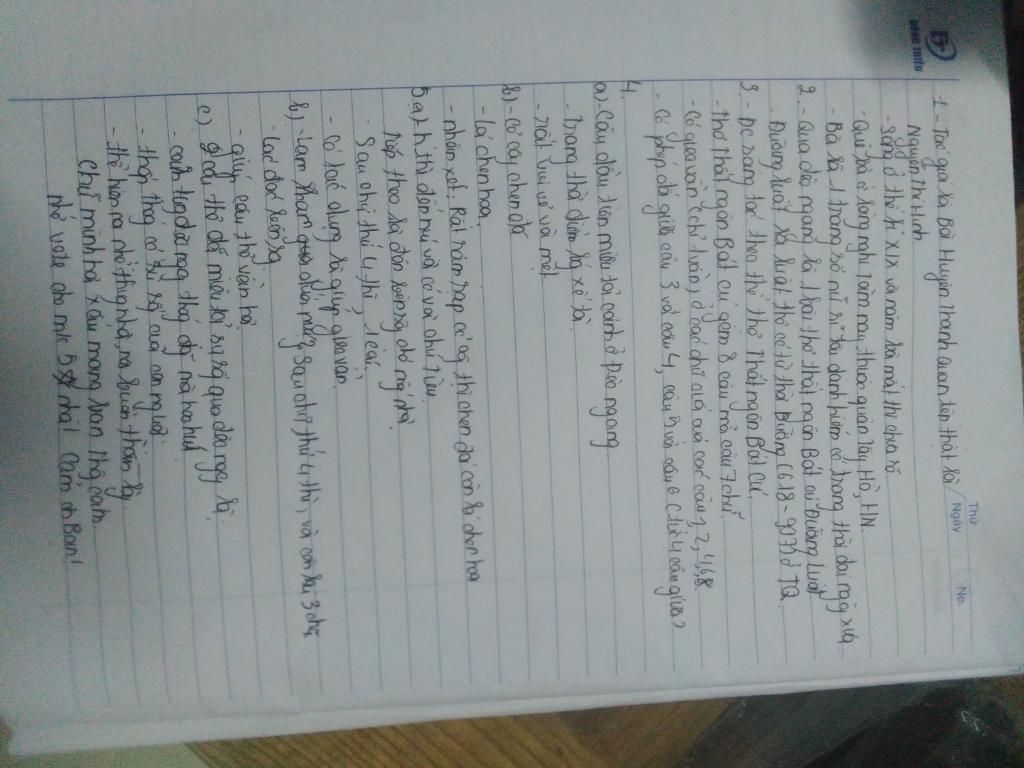 ĐÔNG THIÊN
Thứ
Ngày
No.
1 - Tác giả là Bà Huyện Thanh Quan tên thật là
Nguyễn Thị Hinh
- Sống ở thế kỉ XIX và năm sinh mất thì chưa rõ
- Quê bà ở làng nghi tàm nay thuộc quận Tây Hồ, HN
- Bà là 1 trong số nữ sĩ tài danh hiếm có trong thời đại ngày xưa
2 - Qua đèo ngang là 1 bài thơ thất ngôn Bát cú Đường Luật
- Đường luật là luật thơ có từ thời Đường (618 - 907) ở TQ
3 - Đc sáng tác theo thể thơ Thất ngôn Bát Cú.
- Thơ thất ngôn Bát cú gồm 8 câu mỗi câu 7 chữ
- Có gieo vần (chỉ 1 vần) ở các chữ cuối của các câu 1, 2, 4, 6, 8
- Có phép đối giữa câu 3 và câu 4, câu 5 và câu 6 (tức 4 câu giữa)
4.
a) Câu đầu tiên miêu tả cảnh ở Đèo ngang
- trong thời điểm xế tà
- nói vui vẻ và mệt
b) - Cỏ cây chen đá
- lá chen hoa,
- nhận xét: Rất rậm rạp cỏ cây thì chen đá còn lá chen hoa
5. a) - thì đến núi và có vài chú tiều
tiếp theo là đến bên sông chợ mấy nhà
- Sau chữ thứ 4 thì, là các
- Có tác dụng là giúp gieo vần
b) - Lom khom dưới núi, sau chữ thứ 4 thì, và còn lại 3 chữ
- Lác đác bên sông
- giúp câu thơ vần hơn
c) 2 câu thơ đó miêu tả sự số qua đèo ngang là
- cảnh tượng đèo ngang thấp mà heo hút
- thấp thoáng có sự sống của con người
- thể hiện ra nỗi nhớ nhà, nỗi buồn thầm lặng
Chữ mình hơi xấu mong bạn thông cảm
nhớ vote cho mk 5 nha! Cảm ơn Bạn!